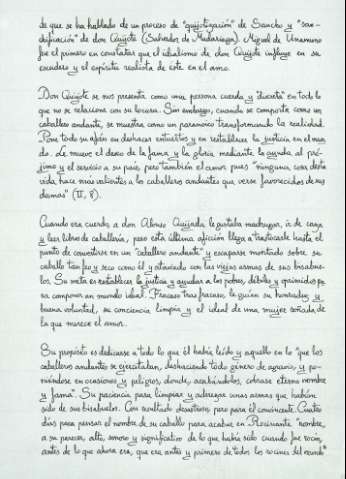 de que se ha hablado de un proceso de "quijotización" de Sancho y "san-
chificación" de don Quijote (Salvador de Madariaga). Miguel de Unamuno
fue el primero en constatar que el idealismo de don Quijote influye en su
escudero y el espíritu realista de éste en el amo.
Don Quijote se nos presenta como una persona cuerda y "discreta" en todo lo
que no se relaciona con su locura. Sin embargo, cuando se comporta como un
caballero andante, se muestra como un paranoico transformando la realidad.
Pone todo su afán en deshacer entuertos y en restablecer la justicia en el mun-
do. Le mueve el deseo de la fama y la gloria mediante la ayuda al pró-
jimo y el servicio a su país pero también el amor pues "ninguna cosa desta
vida hace más valientes a los caballeros andantes que verse favorecidos de sus
damas" (II, 8).
Cuando era cuerdo a don Alonso Quijada le gustaba madrugar, ir de caza
y leer libros de caballería, pero esta última afición llega a trastocarle hasta el
punto de convertirse en un "caballero andante" y escaparse montado sobre su
caballo tan feo y seco como él y ataviado con las viejas armas de sus bisabue-
los. Su meta es restablecer la justicia y ayudar a los pobres, débiles y oprimidos pa-
ra componer un mundo ideal. Fracaso tras fracaso, le guían su honradez, su
buena voluntad, su conciencia limpia y el ideal de una mujer soñada de
la que merece el amor.
Su propósito es dedicarse a todo lo que él había leído y aquello en lo "que los
caballeros andantes se ejercitaban, deshaciendo todo género de agravio, y po-
niéndose en ocasiones y peligros, donde, acabándolos, cobrase eterno nombre
y fama". Su paciencia para limpiar y aderezar unas armas que habían
sido de sus bisabuelos. Con resultado desastroso pero para él convincente. Cuatro
días para pensar el nombre de su caballo para acabar en Rocinante "nombre,
a su parecer, alto, sonoro y significativo de lo que había sido cuando fue rocín,
antes de lo que ahora era, que era antes y primero de todos los rocines del mundo"